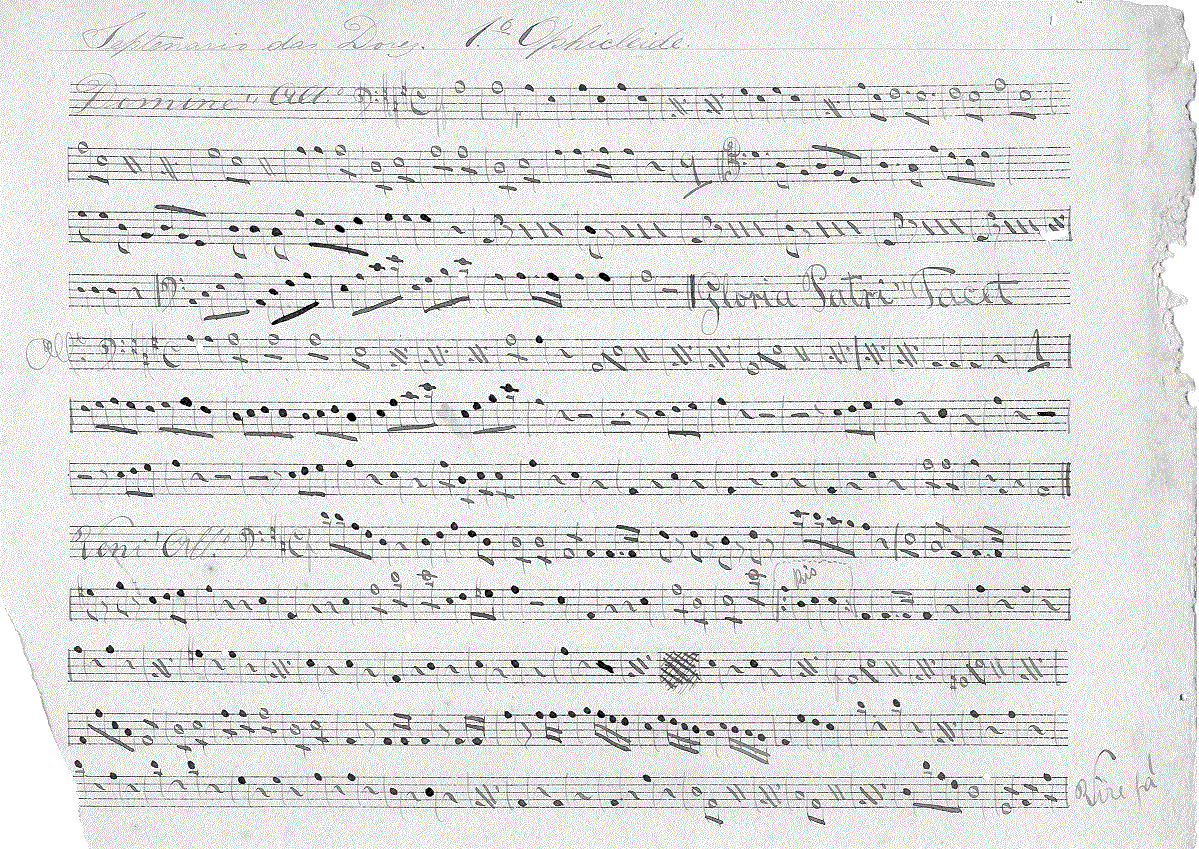 Septenario das Dores. 1.º Ophicleide.
Domine" All.º
Gloria Patri" Tacet
All.º
Veni" All.º
Bis
Vire já